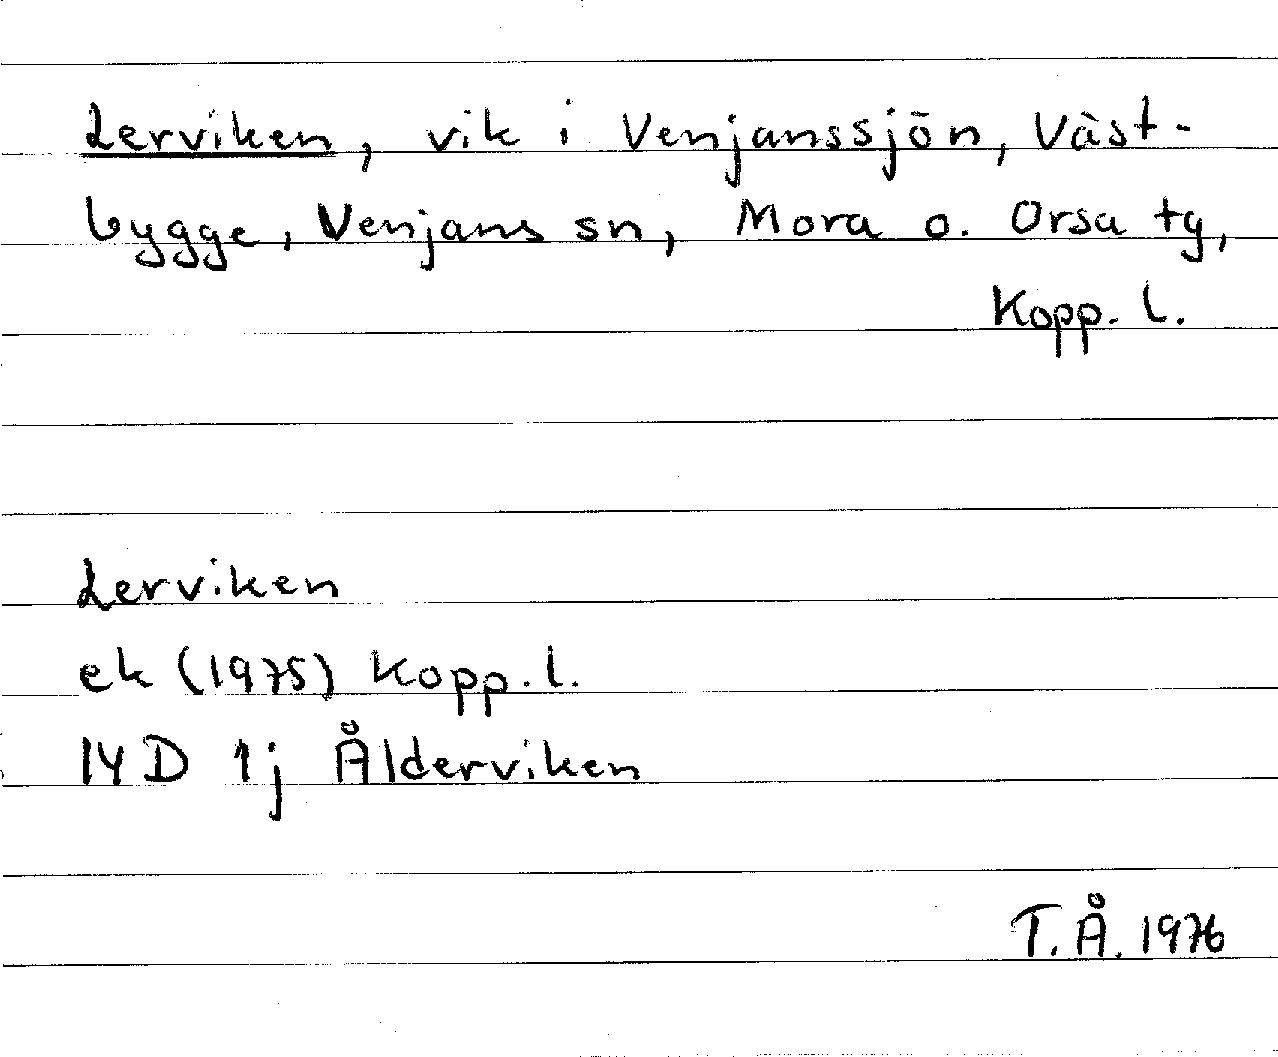 Lerviken, vik i Venjanssjön, Väst-
bygge, Venjans sn, Mora o. Orsa tg,
Kopp. l.
Lerviken
ek (1975) Kopp. l.
14 D 1j Ålderviken
T.Å. 1976